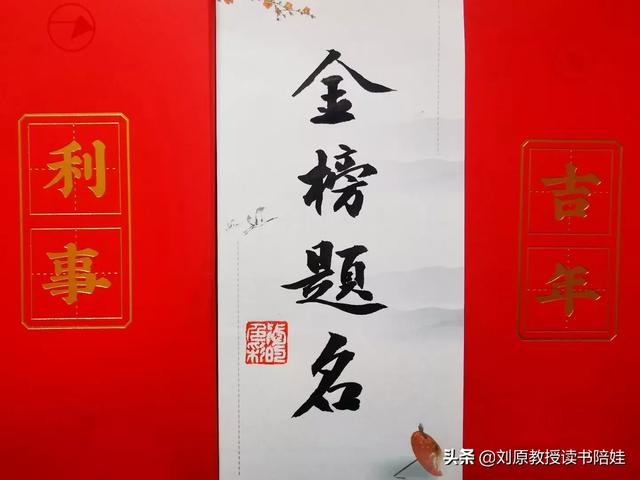 利事
金榜题名
吉年
头条 @刘原教授读书陪娃